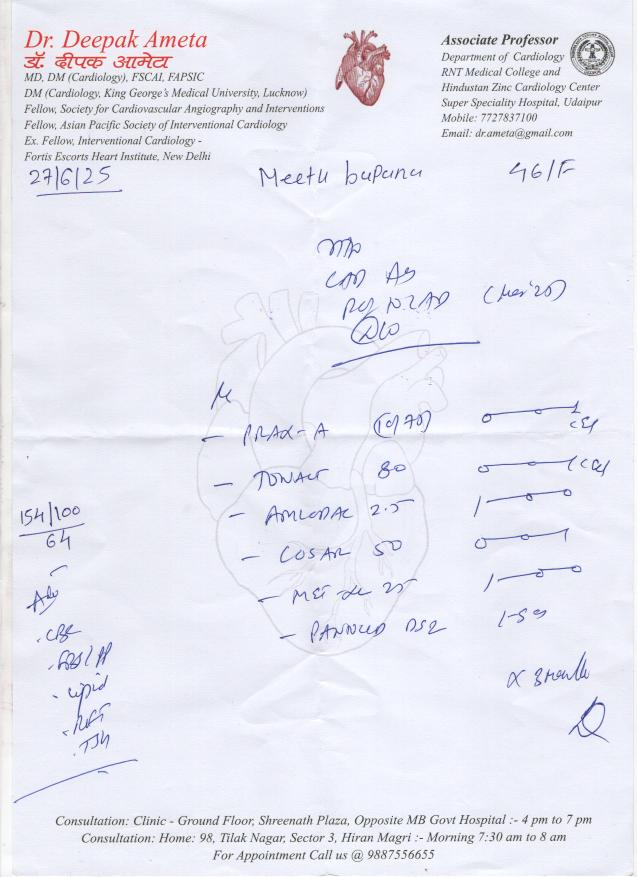 Dr. Deepak Ameta
डॉ. दीपक आमेटा
MD, DM (Cardiology), FSCAI, FAPSIC
DM (Cardiology, King George's Medical University, Lucknow)
Fellow, Society for Cardiovascular Angiography and Interventions
Fellow, Asian Pacific Society of Interventional Cardiology
Ex. Fellow, Interventional Cardiology -
Fortis Escorts Heart Institute, New Delhi
Associate Professor
Department of Cardiology
RNT Medical College and
Hindustan Zinc Cardiology Center
Super Speciality Hospital, Udaipur
Mobile: 7727837100
Email: dr.ameta@gmail.com
27/6/25
Meetu 46/F
CAD
PRAX-A (10/75) 0-0-1
80 0-0-1
AMLODAC 2.5 1-0-0
COSAR 50 0-0-1
MET-XL 25 1-0-0
DSR
154/100
64
Adv
. CBC
. lipid
. RFT
. TSH
Consultation: Clinic - Ground Floor, Shreenath Plaza, Opposite MB Govt Hospital :- 4 pm to 7 pm
Consultation: Home: 98, Tilak Nagar, Sector 3, Hiran Magri :- Morning 7:30 am to 8 am
For Appointment Call us @ 9887556655